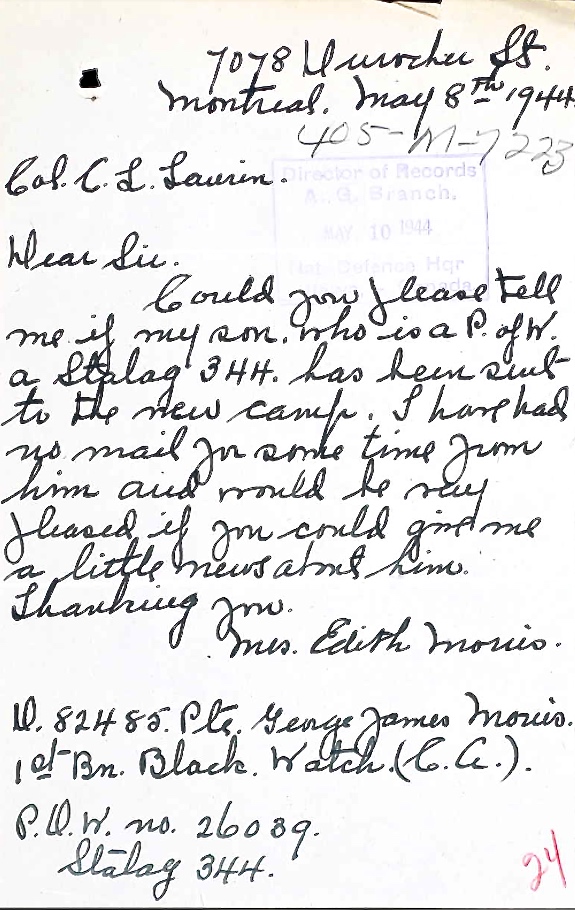 7078 Durocher St.
Montreal. May 8th 1944
405-M-7223
Col. C. L. Laurin.
Director of Records
A. G. Branch.
MAY 10 1944
Nat. Defence Hqr
Dear Sir.
Could you please tell
me if my son. who is a P. of W.
a Stalag 344. has been sent
to the new camp. I have had
no mail for some time from
him and would be very
pleased if you could give me
a little news about him.
Thanking you.
Mrs. Edith Morris.
D. 82485. Pte. George James Morris.
1st Bn. Black. Watch. (C. A.).
P.O.W. no. 26039.
Stalag 344.
24